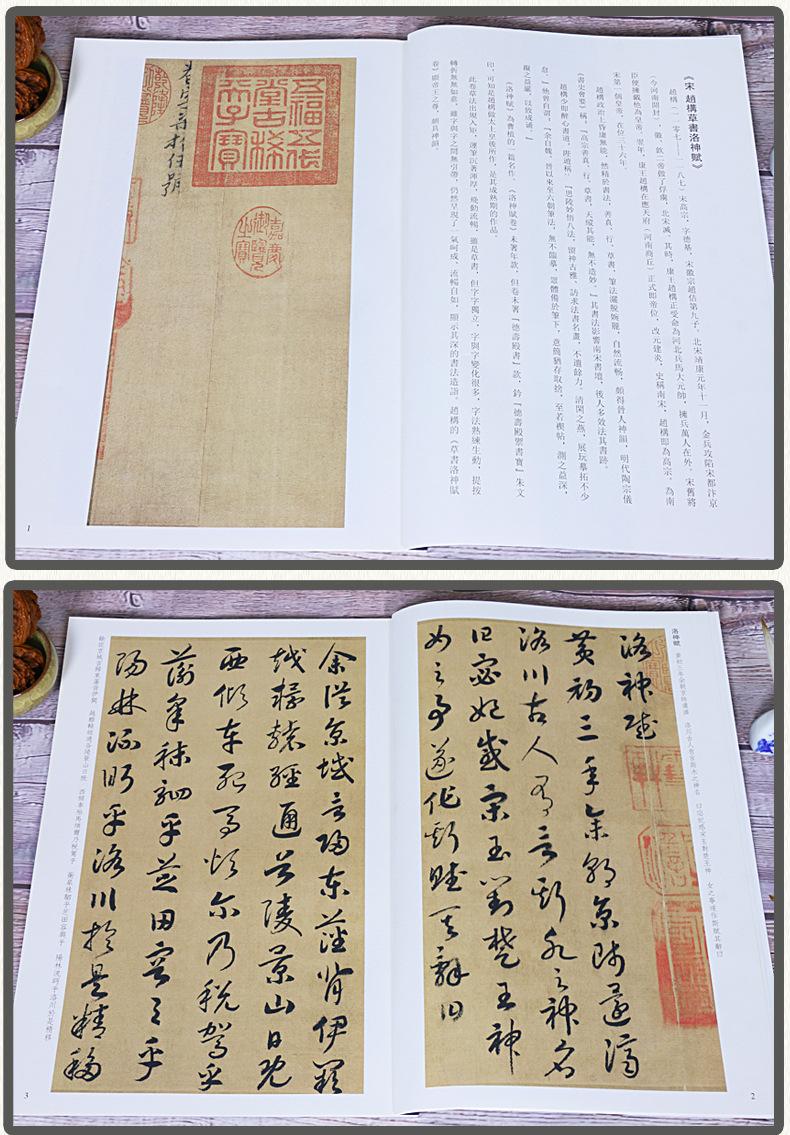 《宋 趙構草書洛神賦》
趙構(一一零七—一一八七)宋高宗，字德基，宋徽宗趙佶第九子，北宋靖康元年十一月，金兵攻陷宋都汴京
(今河南開封)，徽、欽二帝做了俘虜，北宋滅。其時，康王趙構正受命為河北兵馬大元帥，擁兵萬人在外。宋舊將
臣便擁戴他為皇帝，翌年，康王趙構在應天府(河南商丘)正式即帝位，改元建炎，史稱南宋，趙構即為高宗。為南
宋第一個皇帝，在位三十六年。
趙構政治上昏庸無能，然精於書法，善真、行、草書，筆法灑脫婉麗，自然流暢，頗得晉人神韻，明代陶宗儀
《書史會要》稱：『高宗善真、行、草書，天縱其能，無不造妙。』其書法影響南宋書壇，後人多效法其書跡。
趙構少即醉心書道，
『思陵妙悟八法，留神古雅，訪求法書名畫，不遺餘力，清閑之燕，展玩摹拓不少
怠。』他曾自謂：『余自魏、晉以來至六朝筆法，無不臨摹，眾體備於筆下，意簡猶存取捨，至若禊帖，測之益深，
擬之益嚴，以致成誦。』
《洛神賦》為曹植的一篇名作。《洛神賦卷》未著年款，但卷末署『德壽殿書』款，鈐『德壽殿禦書寶』朱文
印，可知是趙構做太上皇後所作，是其成熟期的作品。
此卷草法出規入矩，運筆沉著渾厚，飛動流暢。雖是草書，但字字獨立，字與字變化很多，字法熟練生動，提按
轉折無如意，雖字與字之間無引帶，仍然呈現了一氣呵成，流暢自如，顯示其深的書法造詣。趙構的《草書洛神賦
卷》
五福五代
堂古稀
天子寶
嘉慶
御覽
之寶
1
洛神賦
黃初三年余朝京師還濟
洛川古人有言斯水之神名
曰宓妃感宋玉對楚王神
女之事遂作斯賦其辭曰
洛神賦 黃初三年余朝京師還濟 洛川古人有言斯水之神名 曰宓妃感宋玉對楚王神 女之事遂作斯賦其辭曰
2
余從京域言歸東藩背伊闕
越轘轅經通谷陵景山日既
西傾車殆馬煩爾乃稅駕乎
蘅皋秣駟乎芝田容與乎
陽林流眄乎洛川於是精移
餘從京域言歸東藩背伊闕 越轘轅經通谷陵景山日既 西傾車殆馬煩爾乃稅駕乎 蘅皋秣駟乎芝田容與乎 陽林流眄乎洛川於是精移
3